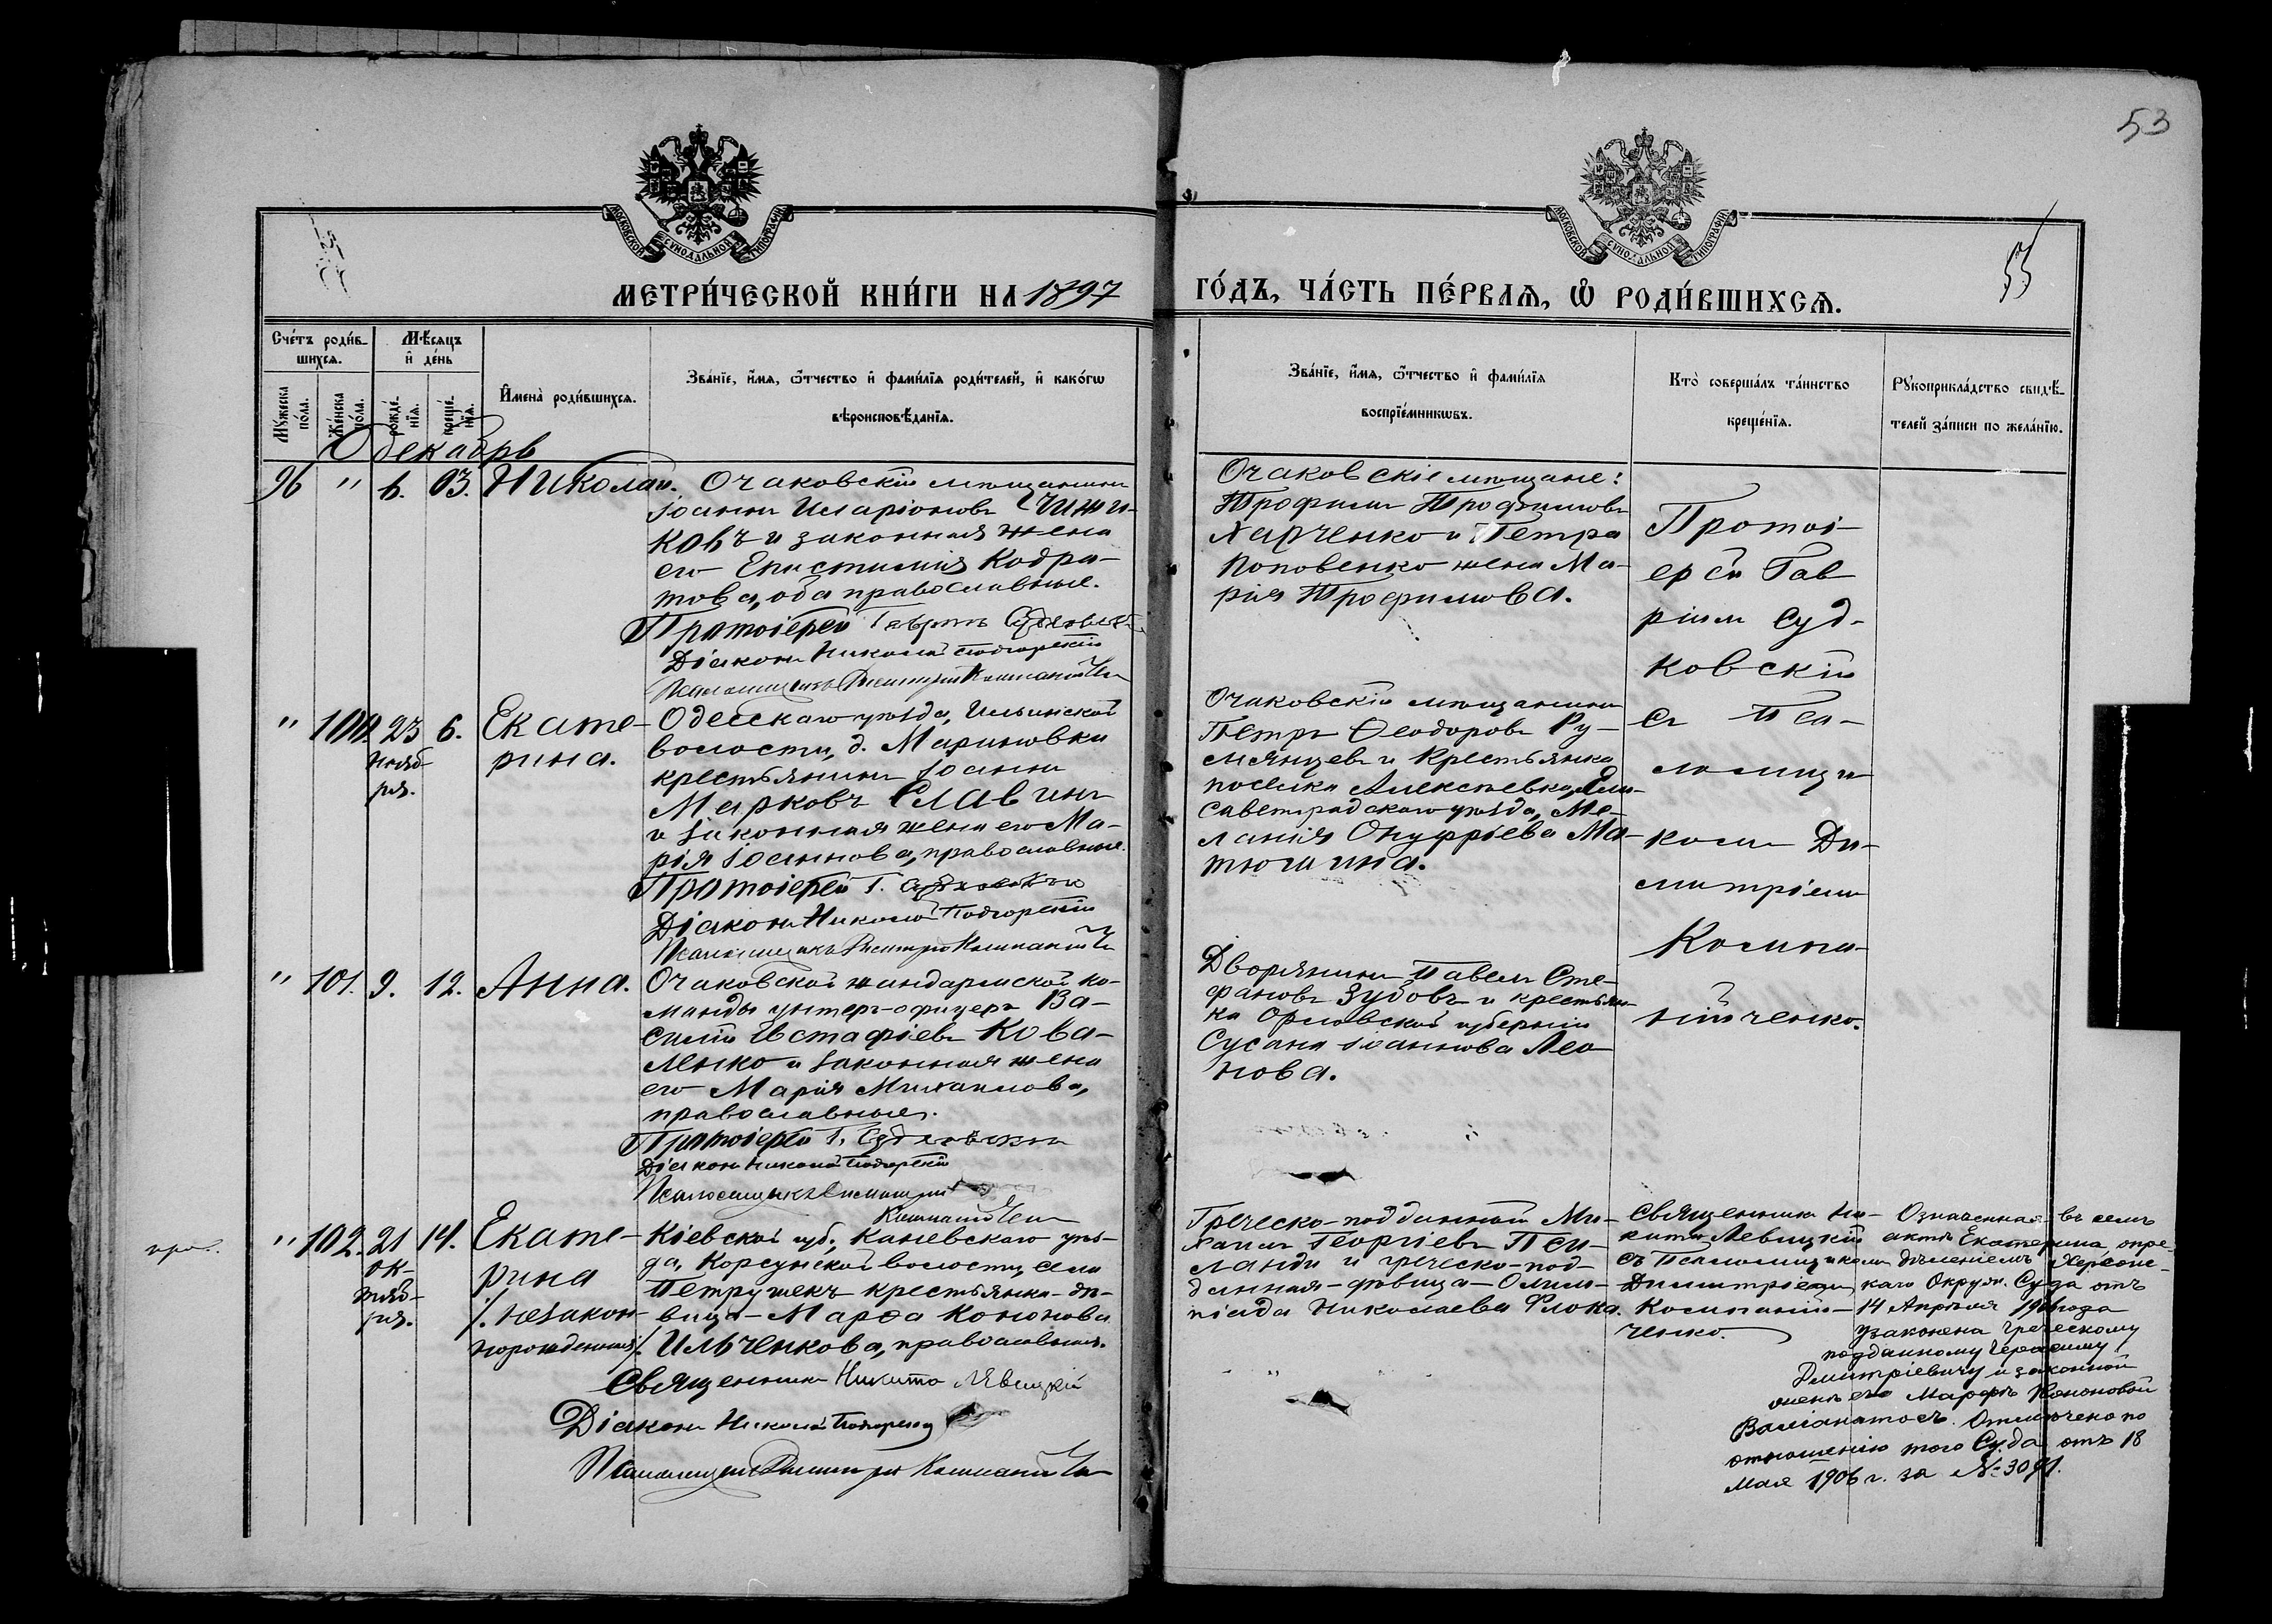 53
55
МОСКОВСКОЙ СѴНОДАЛЬНОЙ ТИПОГРАФІИ
МОСКОВСКОЙ СѴНОДАЛЬНОЙ ТИПОГРАФІИ
МЕТРИ́ЧЕСКОЙ КНИ́ГИ НА 1897
ГО́ДЪ, ЧА́СТЬ ПЕ́РВАѦ, Ѡ҆ РОДИ́ВШИХСѦ.
Сче́тъ роди́в-
шихсѧ.
Мѣ́сѧцъ
и҆ де́нь
Мꙋжеска
по́ла.
Же́нска
по́ла.
рожде́-
нїѧ.
креще́-
нїѧ.
И҆мена̀ роди́вшихсѧ.
Зва́нїе, и҆́мѧ, ѻ҆́тчество и҆ фами́лїѧ роди́телей, и҆ како́гѡ
вѣроисповѣ́данїѧ.
Зва́нїе, и҆́мѧ, ѻ҆́тчество и҆ фами́лїѧ
воспрїе́мникѡвъ.
Кто̀ соверша́лъ та́инство
креще́нїѧ.
Рꙋкоприкла́дство свидѣ́-
телей за́писи по жела́нїю.
Декабрь
96 " 6. 03. Николай. Очаковскій мѣщанинъ
Іоаннъ Иларіоновъ Чижи-
ковъ и законная жена
его Епистимія Кодра-
това, оба православные.
Протоіерей Гавріилъ Судковскій
Діаконъ Николай Подгорскій
Псаломщикъ Димитрій Компанійченко
Очаковскіе мѣщане:
Трофимъ Трофимовъ
Харченко и Петра
Поповенко жена Ма-
рія Трофимова.
Протоі-
ерей Гав
ріилъ Суд-
ковскій
съ Пса-
ломщи
комъ Ди-
митріемъ
Компа-
нійченко.
" 100. 23 6. Екате-
Нояб-
ря.
рина.
Одесскаго уѣзда, Ильинской
волости, д. Мариновки
крестьянинъ Іоаннъ
Марковъ Славинъ
и законная жена его Ма-
рія Іоаннова, православные.
Протоіерей Г. Судковскій
Діаконъ Николай Подгорскій
Псаломщикъ Димитрій Компанійченко
Очаковскій мѣщанинъ
Петръ Ѳеодоровъ Ру-
мянцевъ и крестьянка
поселка Алексѣевка, Ели-
саветградскаго уѣзда, Ме-
ланія Онуфріева Ма-
тюшина.
" 101. 9. 12. Анна. Очаковской жандармской ко-
манды унтеръ-офицеръ Ва-
силій Евстафіевъ Кова-
ленко и законная жена
его Марія Михаилова,
православные.
Протоіерей Г. Судковскій
Діаконъ Николай Подгорскій
Псаломщикъ Димитрій
Компанійченко
Дворянинъ Павелъ Сте-
фановъ Зубовъ и крестьян-
ка Орловской губерніи
Сусана Іоаннова Лео-
нова.
" 102. 21 14. Екате-
ок-
тяб-
ря.
рина
/. незакон-
норожденная /.
Кіевской губ., Каневскаго уѣз-
да, Корсунской волости, села
Петрушекъ крестьянка-дѣ-
вица-Марѳа Кононова
Ильченкова, православная.
Священникъ Никита Левицкій
Діаконъ Николай Подгорскій
Псаломщикъ Димитрій Компанійченко
Греческо-подданный Ми-
хаилъ Георгіевъ Пси-
ланди и греческо-под-
данная-дѣвица-Олим-
піада Николаева Флока.
Священникъ Ни-
кита Левицкій
съ Псаломщикомъ
Димитріемъ
Компаній-
ченко.
Означенная въ семъ
актѣ Екатерина опре-
дѣленіемъ Херсонс-
каго Окружн. Суда отъ
14 Апрѣля 1906 года
узаконена греческому
подданному Герасиму
Дмитріевичу и законной
женѣ его Марфѣ Кононовой
Валіанатосъ. Отмѣчено по
отношенію того Суда отъ 18
Мая 1906 г. за № 3091.